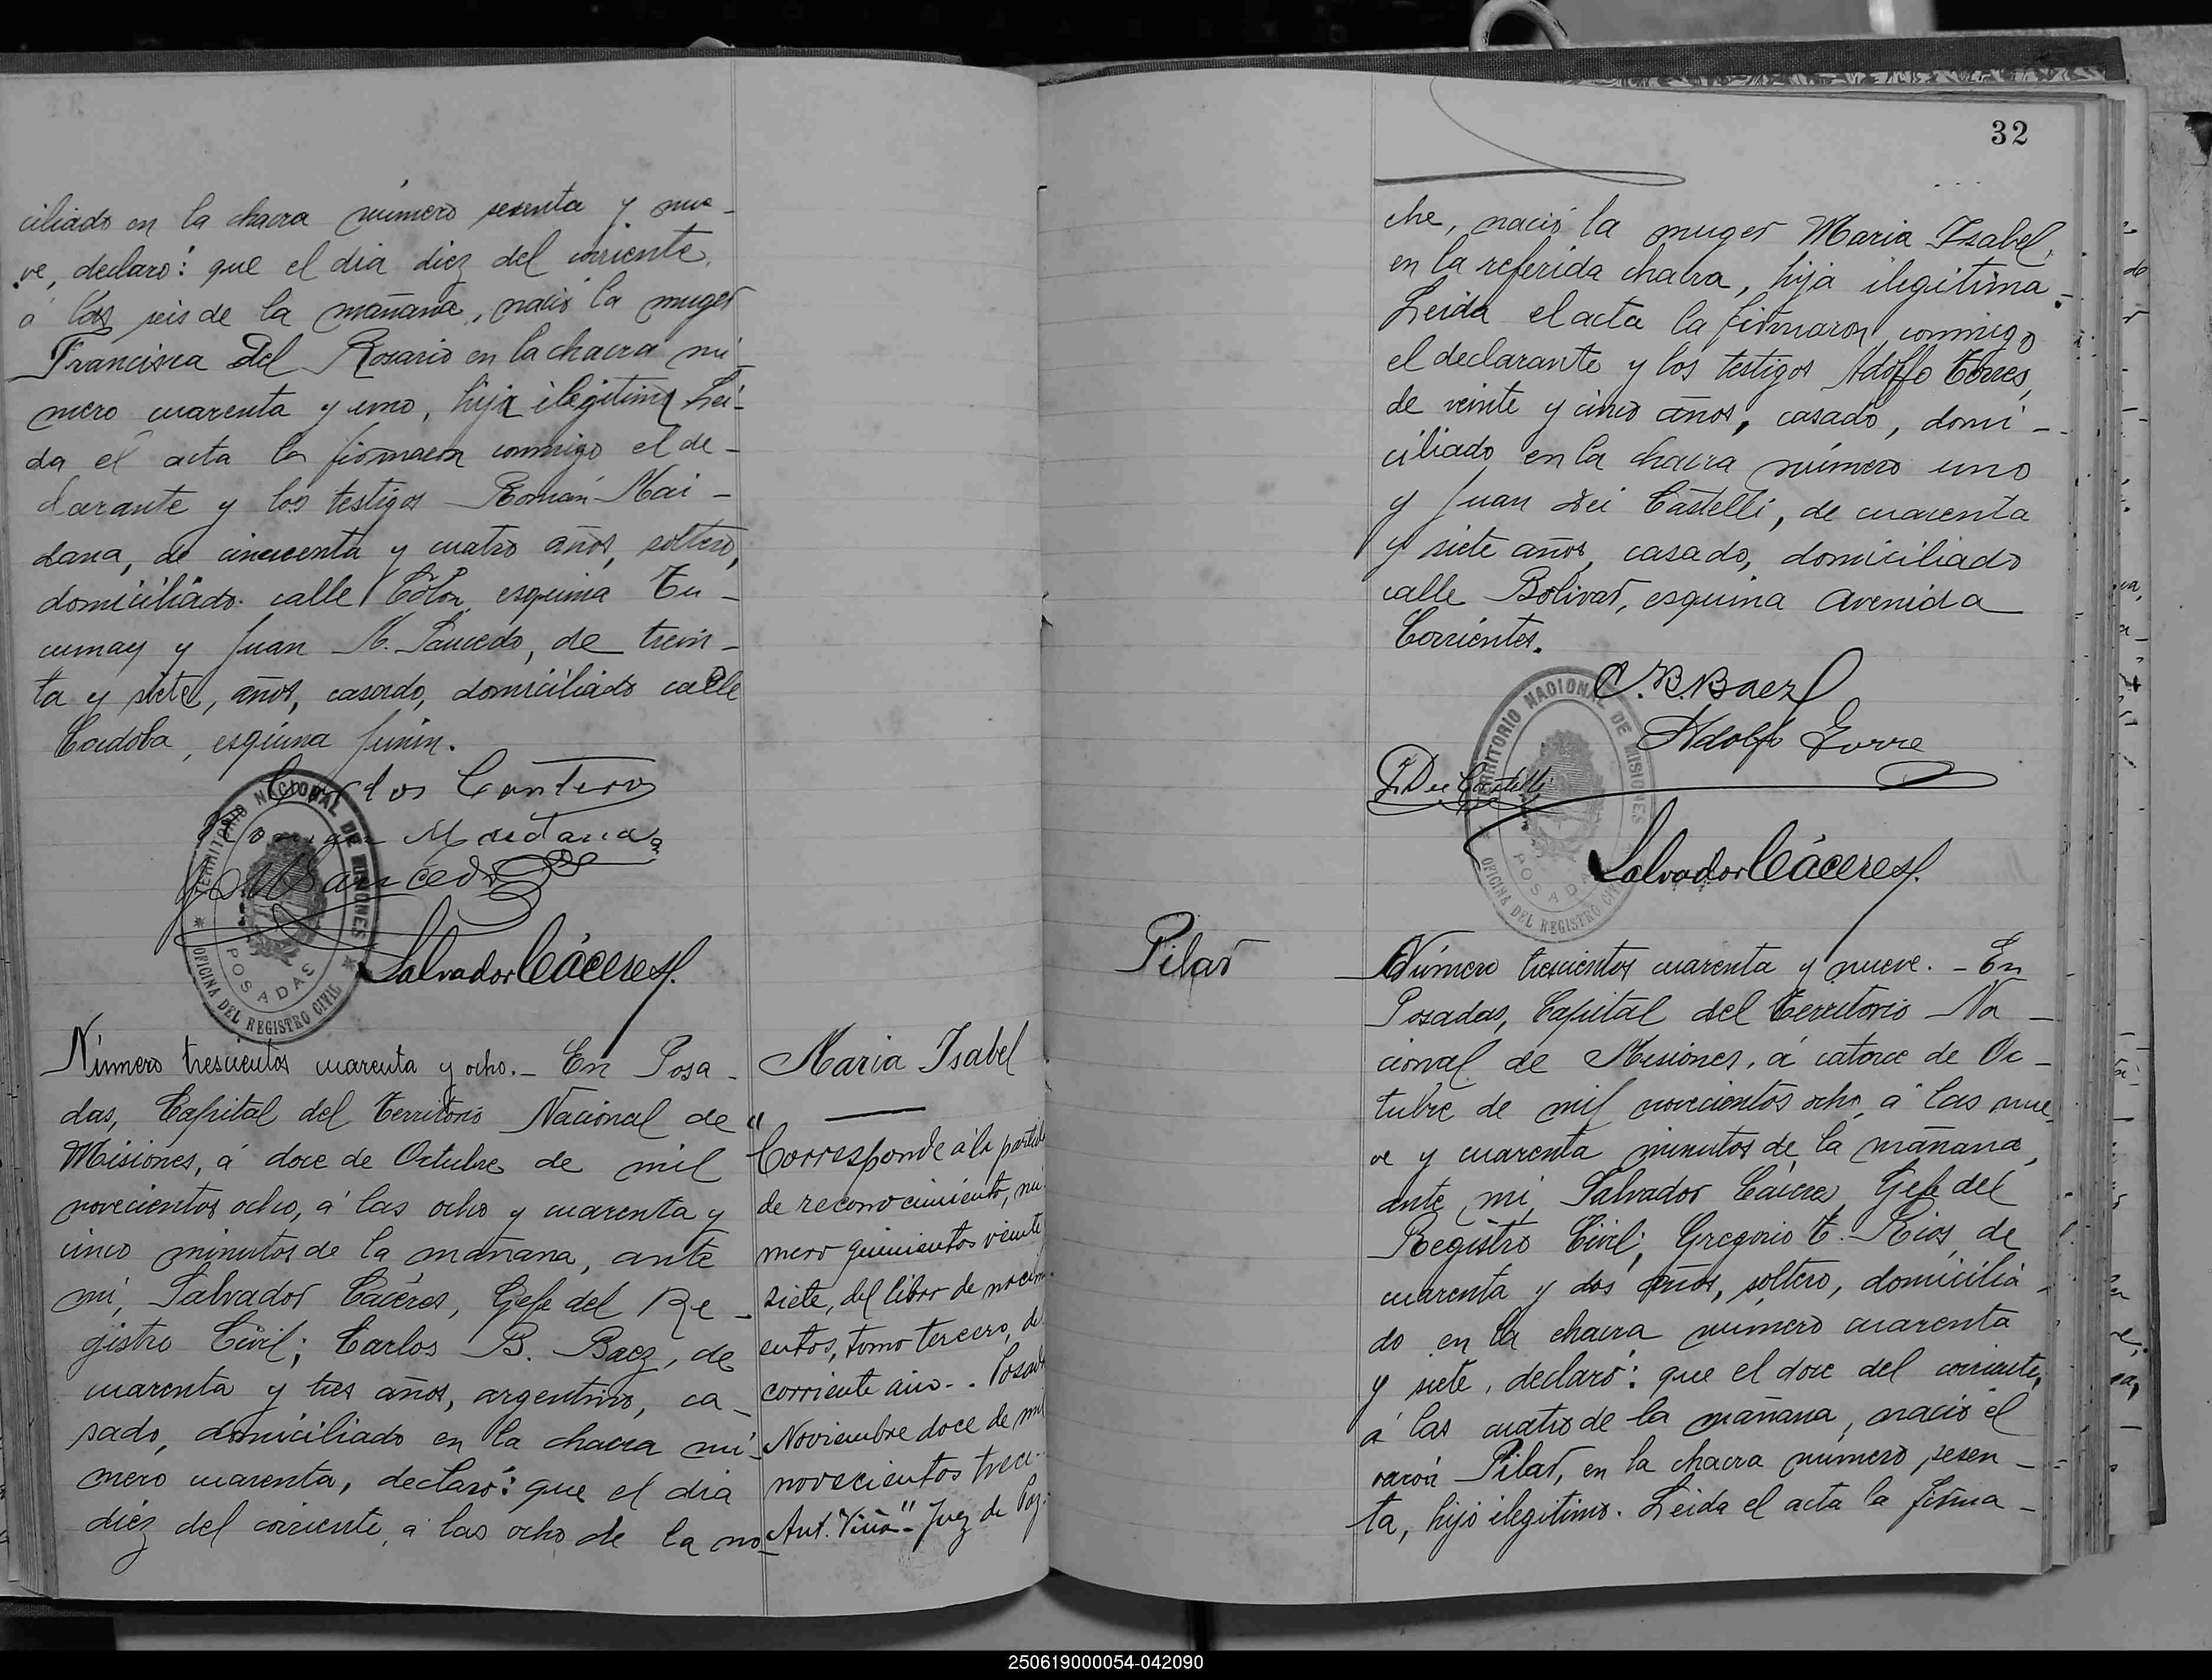 ciliado en la chacra número sesenta y nue-
ve, declaró: que el dia diez del corriente,
á las seis de la mañana, nació la muger
Francisca Del Rosario en la chacra nú-
mero cuarenta y uno, hija ilegitima Lei-
da el acta la firmaron conmigo el de-
clarante y los testigos Román Mai-
dana, de cincuenta y cuatro años, soltero,
domiciliado calle Colon, esquina Tu-
cuman y Juan M. Saucedo, de trein-
ta y siete, años, casado, domiciliado calle
Cordoba, esquina Junin.
Carlos Cantero
Roman Maidana
J. M. Saucedo
TERRITORIO NACIONAL DE MISIONES
POSADAS
OFICINA DEL REGISTRO CIVIL
Salvador Cáceres
Número trescientos cuarenta y ocho.- En Posa-
das, Capital del Territorio Nacional de
Misiones, á doce de Octubre de mil
novecientos ocho, á las ocho y cuarenta y
cinco minutos de la mañana, ante
mi, Salvador Cáceres, Gefe del Re-
gistro Civil; Carlos B. Baez, de
cuarenta y tres años, argentino, ca-
sado, domiciliado en la chacra nú-
mero cuarenta, declaró: que el dia
diez del corriente, á las ocho de la no-
Maria Isabel
"Corresponde á la partida
de reconocimiento, nú-
mero quinientos veinte
siete, del libro de nacimi-
entos, tomo tercero, del
corriente año-. Posadas
Noviembre doce de mil
novecientos trece-.
Ant. Viña"- Juez de Paz.
32
che, nació la muger Maria Isabel,
en la referida chacra, hija ilegitima.-
Leida el acta la firmaron conmigo
el declarante y los testigos Adolfo Torres,
de veinte y cinco años, casado, domi-
ciliado en la chacra número uno
y Juan Dei Castelli, de cuarenta
y siete años, casado, domiciliado
calle Bolivar, esquina Avenida
Corrientes.
C. B. Baez
Adolfo Torre
J. Dei Castelli
TERRITORIO NACIONAL DE MISIONES
POSADAS
OFICINA DEL REGISTRO CIVIL
Salvador Cáceres
Pilar
Número trescientos cuarenta y nueve.- En
Posadas, Capital del Territorio Na-
cional de Misiones, á catorce de Oc-
tubre de mil novecientos ocho, á las nue-
ve y cuarenta minutos de la mañana,
ante mi, Salvador Cáceres, Gefe del
Registro Civil; Gregorio T. Rios, de
cuarenta y dos años, soltero, domicilia-
do en la chacra numero cuarenta
y siete, declaró: que el doce del corriente,
á las cuatro de la mañana, nació el
varon Pilar, en la chacra numero sesen-
ta, hijo ilegitimo. Leida el acta la firma-
250619000054-042090